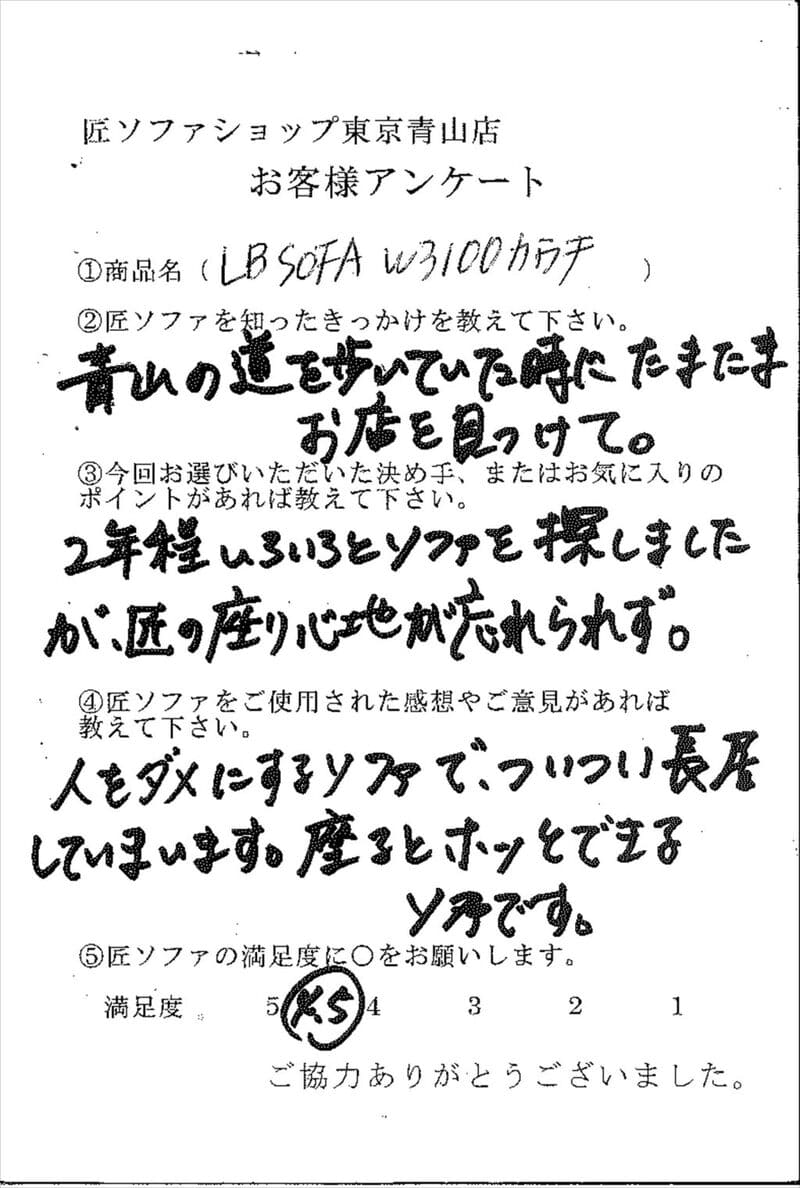 匠ソファショップ東京青山店
お客様アンケート
①商品名（LB SOFA W3100カウチ）
②匠ソファを知ったきっかけを教えて下さい。
青山の道を歩いていた時にたまたま
お店を見つけて。
③今回お選びいただいた決め手、またはお気に入りの
ポイントがあれば教えて下さい。
2年程いろいろとソファを探しました
が、匠の座り心地が忘れられず。
④匠ソファをご使用された感想やご意見があれば
教えて下さい。
人をダメにするソファで、ついつい長居
してしまいます。座るとホッとできる
ソファです。
⑤匠ソファの満足度に〇をお願いします。
満足度。 5 4.5 4 3 2 1
ご協力ありがとうございました。